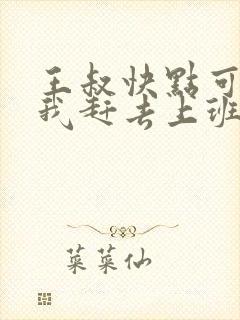 王叔快點可
我赶去上班
菜菜仙